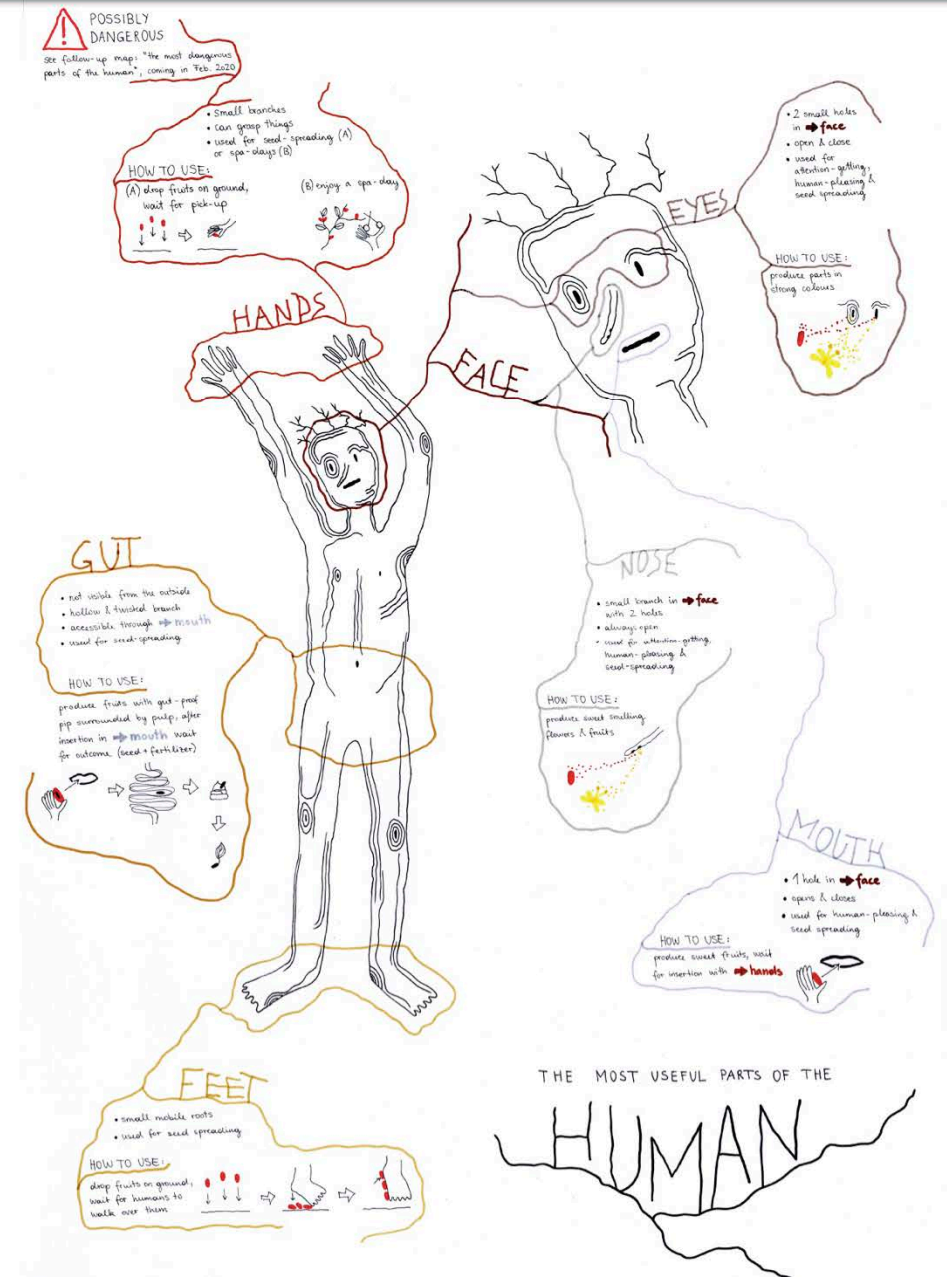 POSSIBLY
DANGEROUS
see follow-up map: "the most dangerous
parts of the human", coming in Feb. 2020
• small branches
• can grasp things
• used for seed-spreading (A)
or spa-days (B)
HOW TO USE:
(A) drop fruits on ground,
wait for pick-up
(B) enjoy a spa-day
HANDS
EYES
• 2 small holes
in ➡ face
• open & close
• used for
attention-getting,
human-pleasing &
seed spreading
HOW TO USE:
produce parts in
strong colours
FACE
GUT
• not visible from the outside
• hollow & twisted branch
• acessible through ➡ mouth
• used for seed-spreading
HOW TO USE:
produce fruits with gut-proof
pip surrounded by pulp, after
insertion in ➡ mouth wait
for outcome (seed + fertilizer)
NOSE
• small branch in ➡ face
with 2 holes
• always open
• used for attention-getting,
human-pleasing &
seed-spreading
HOW TO USE:
produce sweet smelling
flowers & fruits
MOUTH
• 1 hole in ➡ face
• opens & closes
• used for human-pleasing &
seed spreading
HOW TO USE:
produce sweet fruits, wait
for insertion with ➡ hands
FEET
• small mobile roots
• used for seed spreading
HOW TO USE:
drop fruits on ground,
wait for humans to
walk over them
THE MOST USEFUL PARTS OF THE
HUMAN